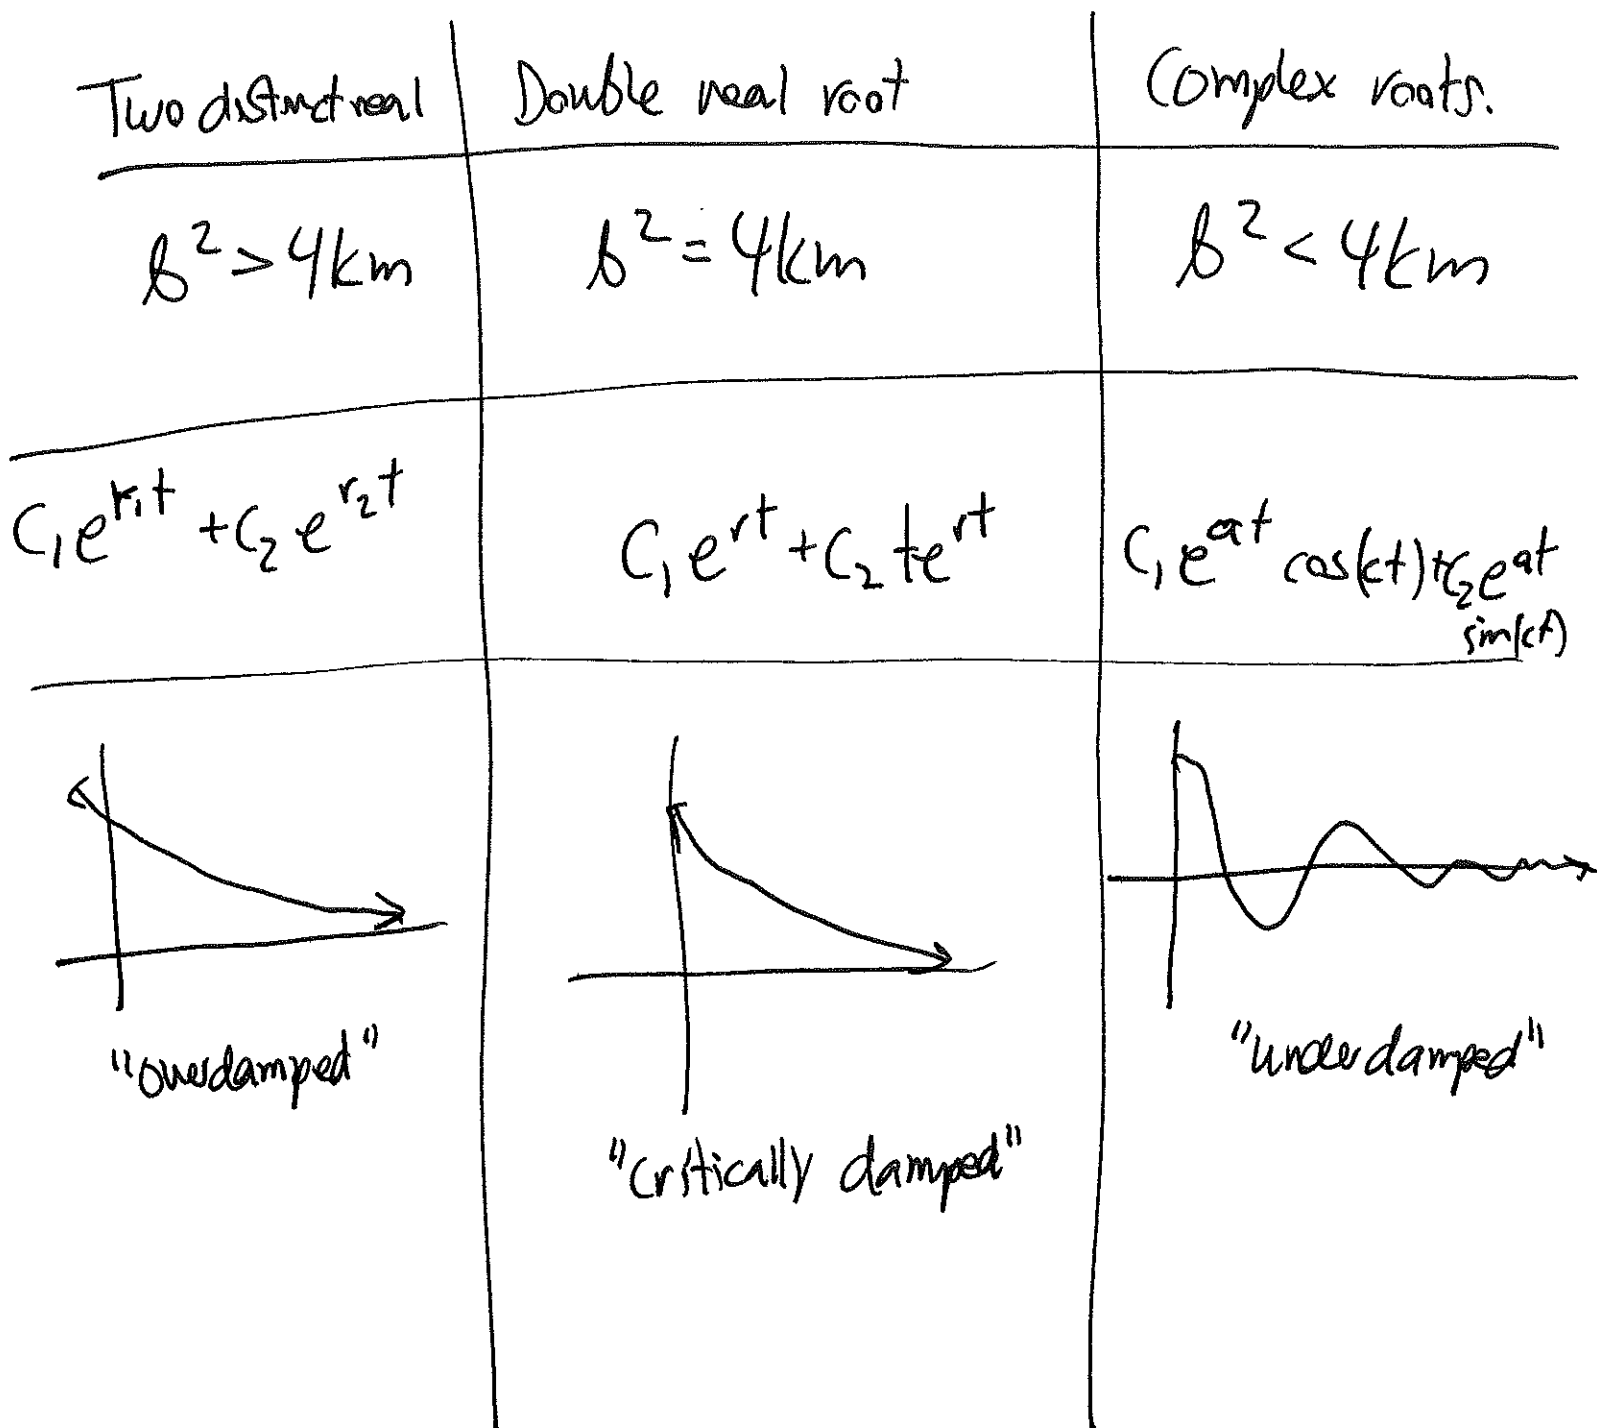 Two distinct real
Double real root
Complex roots.
b² > 4km
b² = 4km
b² < 4km
C₁e^{r₁t} + C₂e^{r₂t}
C₁e^{rt} + C₂te^{rt}
C₁e^{at} cos(ct) + C₂e^{at}
sin(ct)
"overdamped"
"critically damped"
"underdamped"